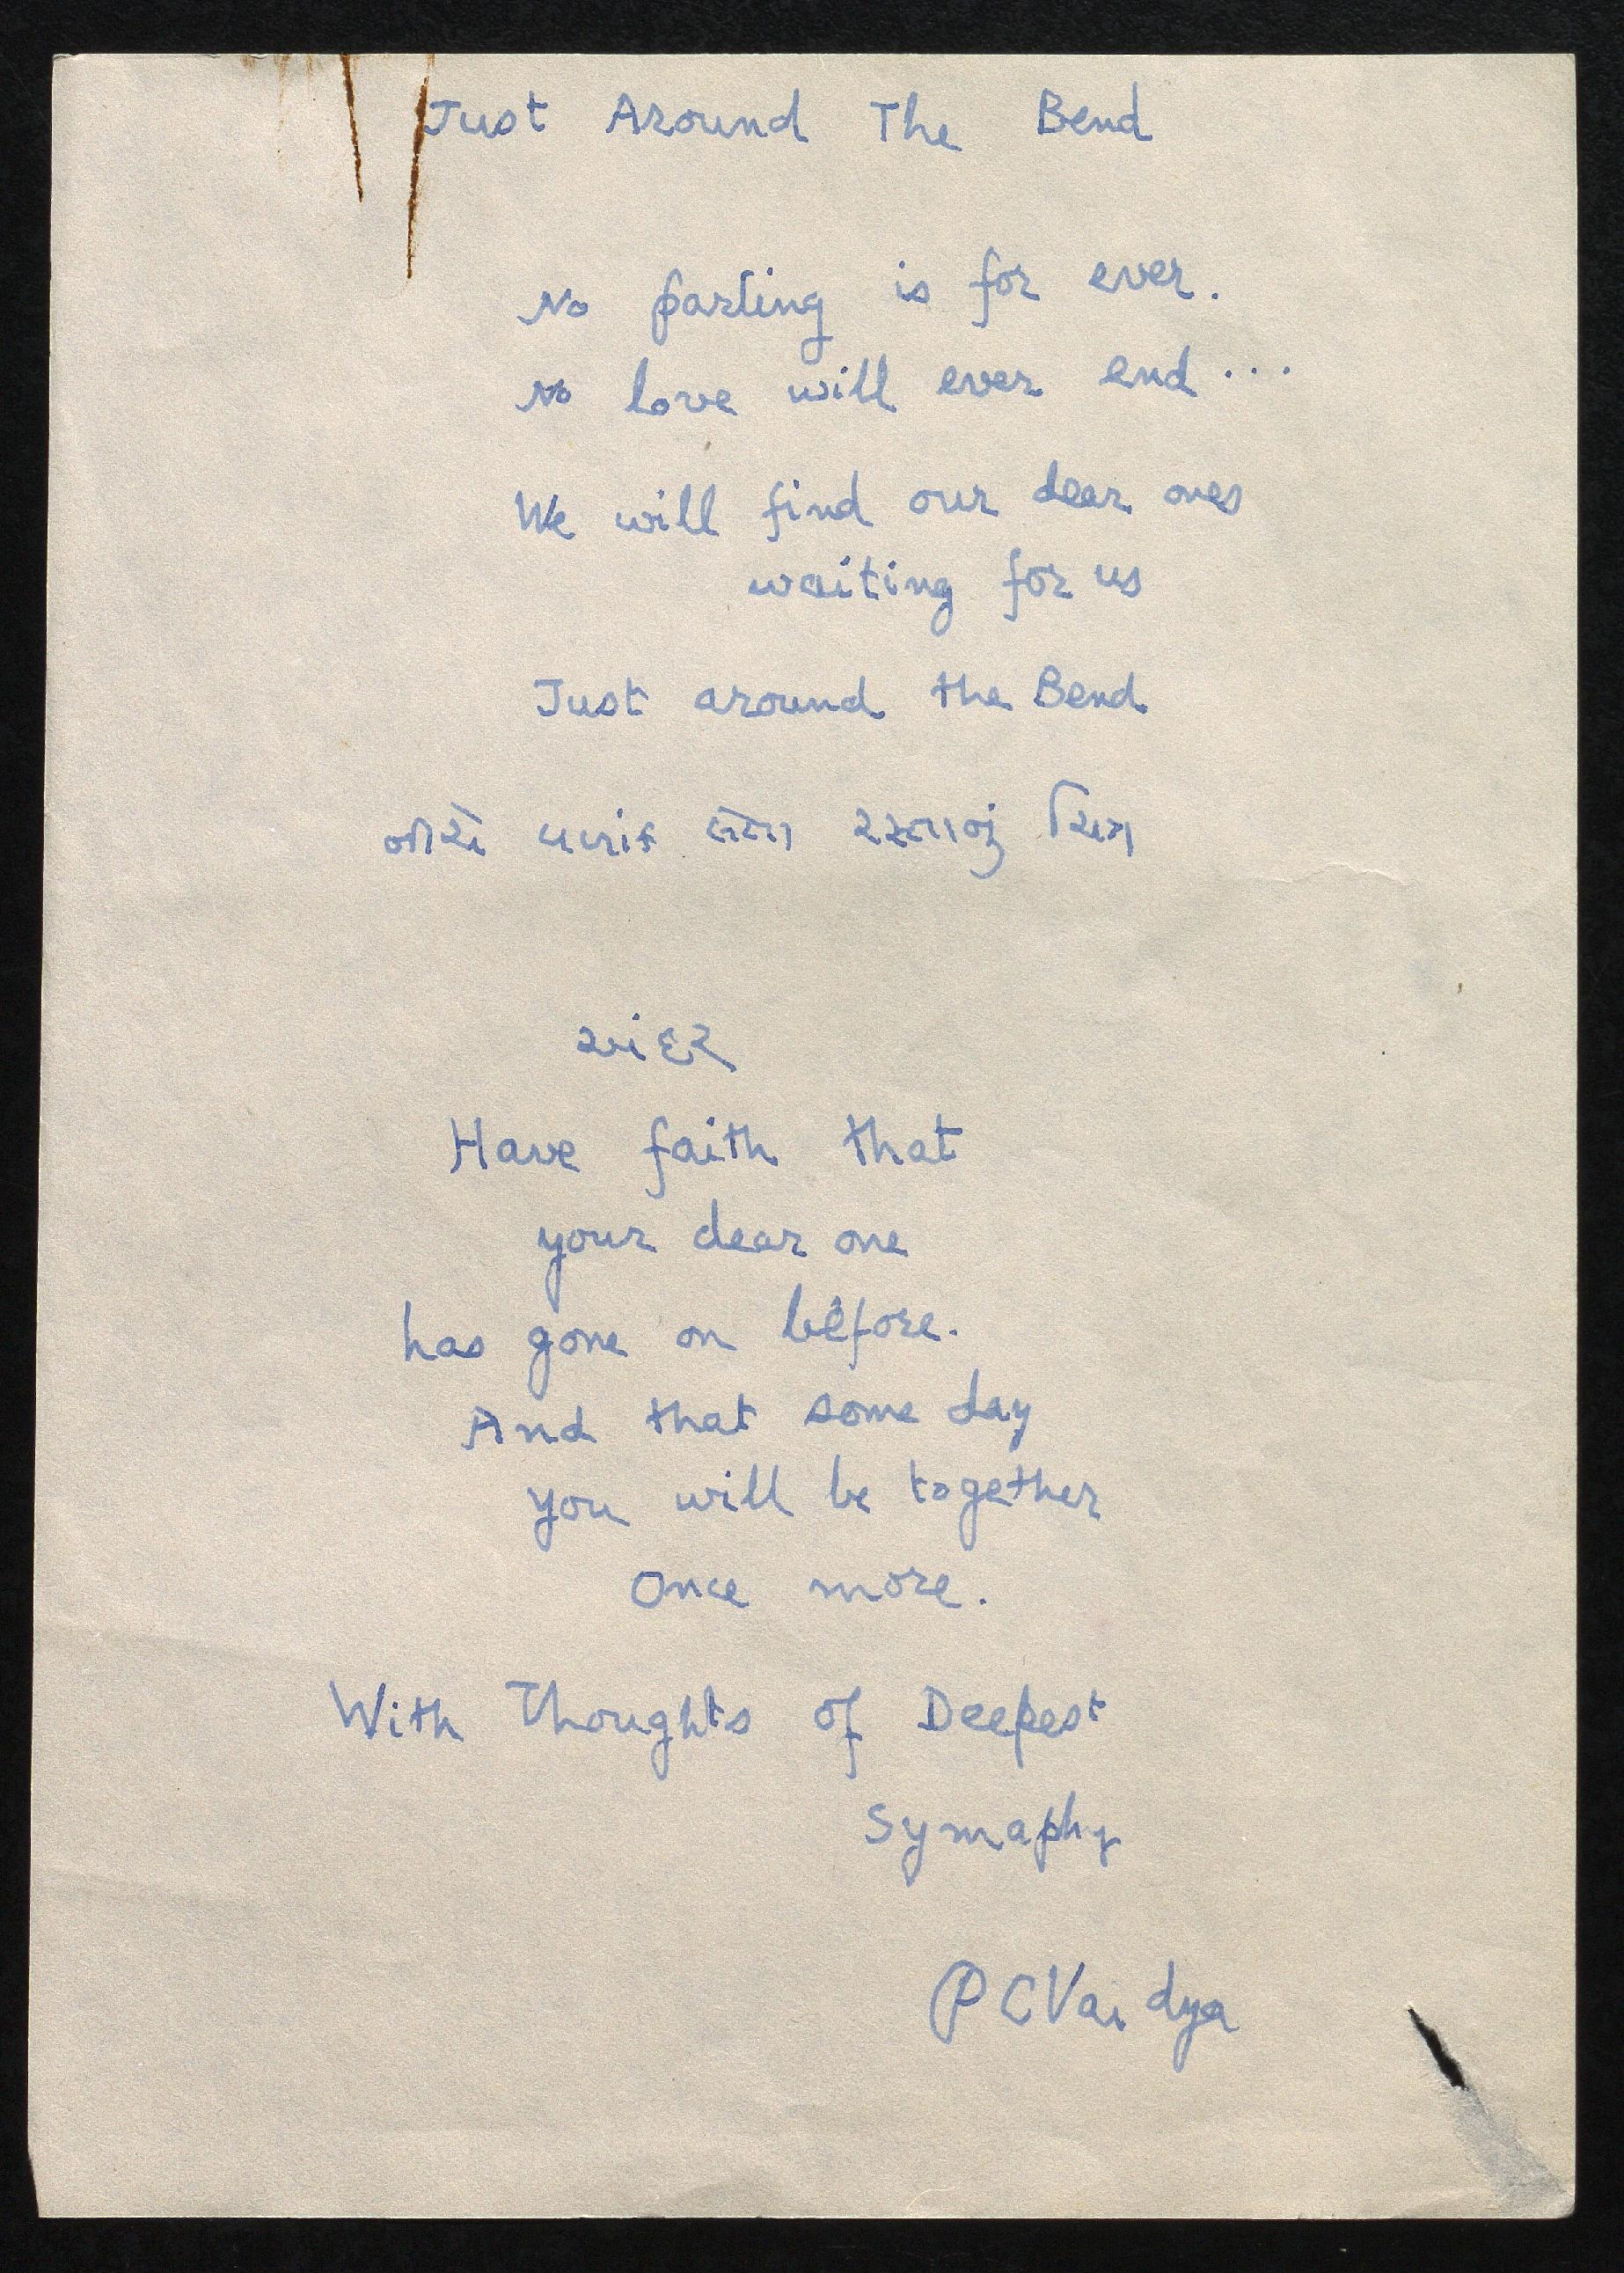 Just Around The Bend
No parting is for ever.
No love will ever end...
We will find our dear ones
waiting for us
Just around the Bend
અંદર
Have faith that
your dear one
has gone on before.
And that some day
you will be together
Once more.
With Thoughts of Deepest
Symaphy
P C Vaidya